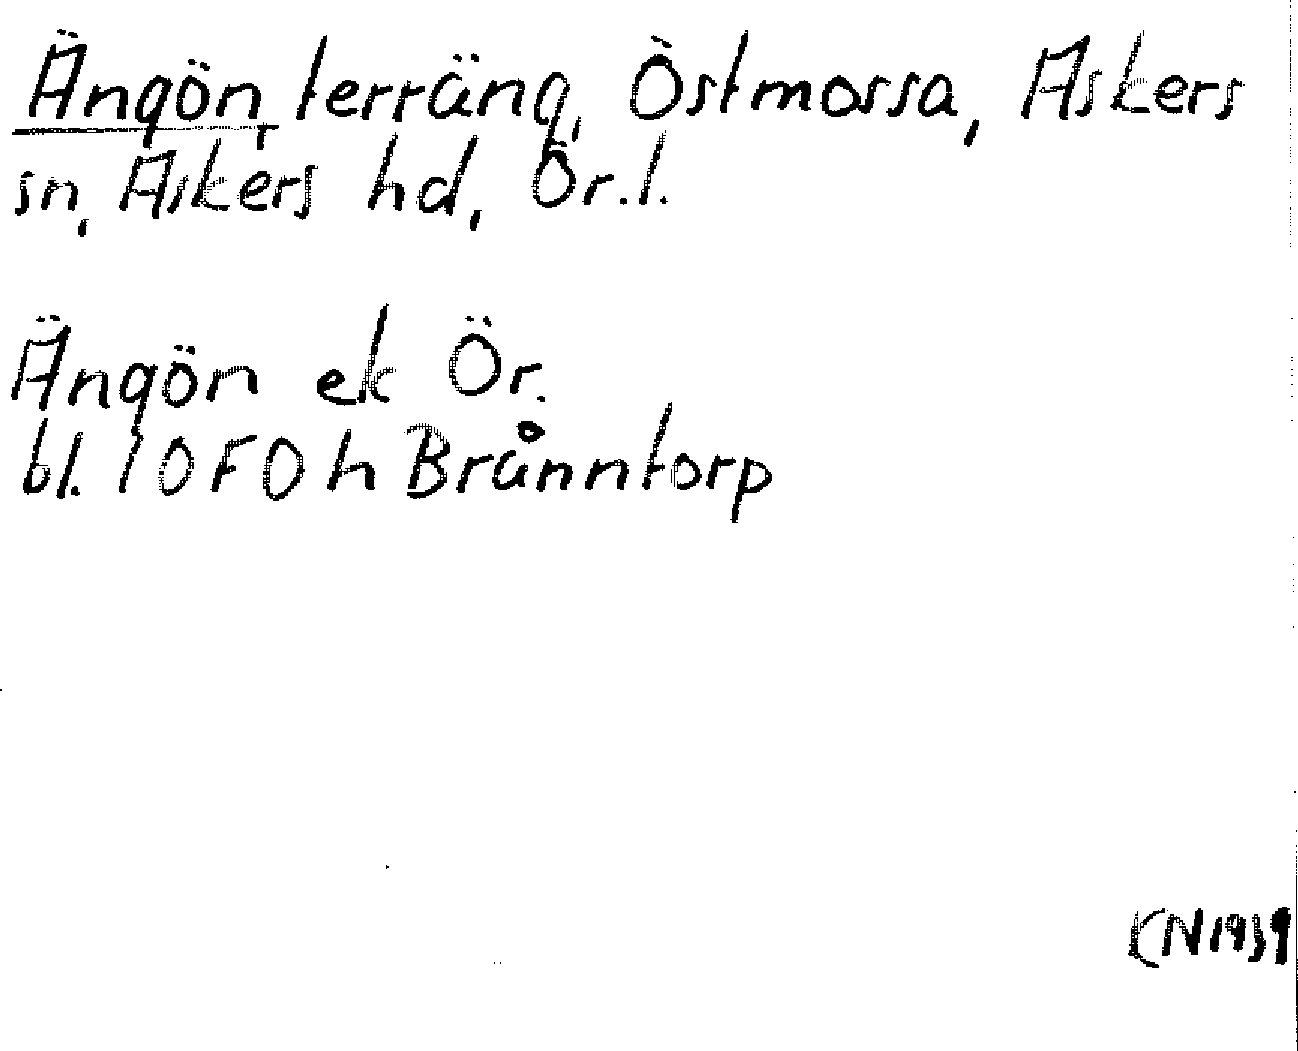 Ängön, terräng, Östmossa, Askers
sn, Askers hd, Ör.l.
Ängön ek Ör.
bl. 10F0h Brånntorp
KN1939